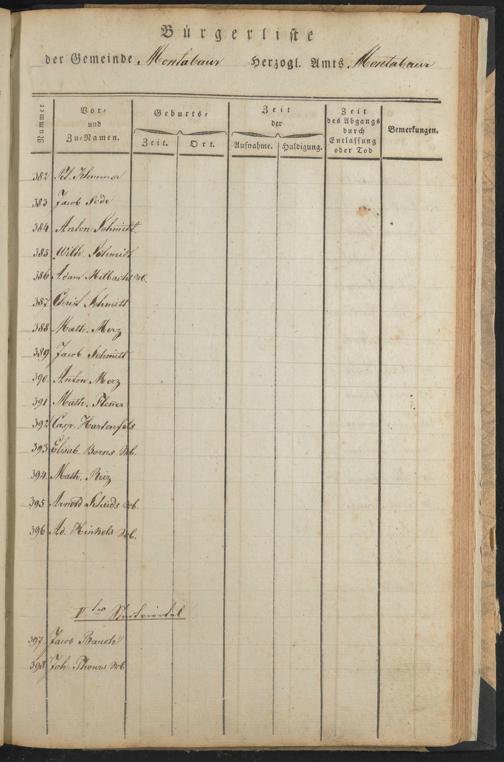 Bürgerliste
der Gemeinde Montabaur Herzogl. Amts Montabaur
Nummer
Vor-
und
Zu-Namen.
Geburts-
Zeit.
Ort.
Zeit
der
Aufnahme.
Huldigung.
Zeit
des Abgangs
durch
Entlassung
oder Tod
Bemerkungen.
382 Pet.
383 Jacob
384 Anton Schmidt
385 Wilh. Schmidt
386 Adam Wb.
387 Christ. Schmidt
388 Math. Merz
389 Jacob Schmidt
390. Anton Merz
391 Math.
392 Casp. Hartenfels
393 Elisab. Borns Wb.
394. Math.
395 Arnold Wb.
396 Ad. Hinkels Wb.
Vtes Stadtviertel
397 Jacob Rauch
398 Joh. Thewes Wb.